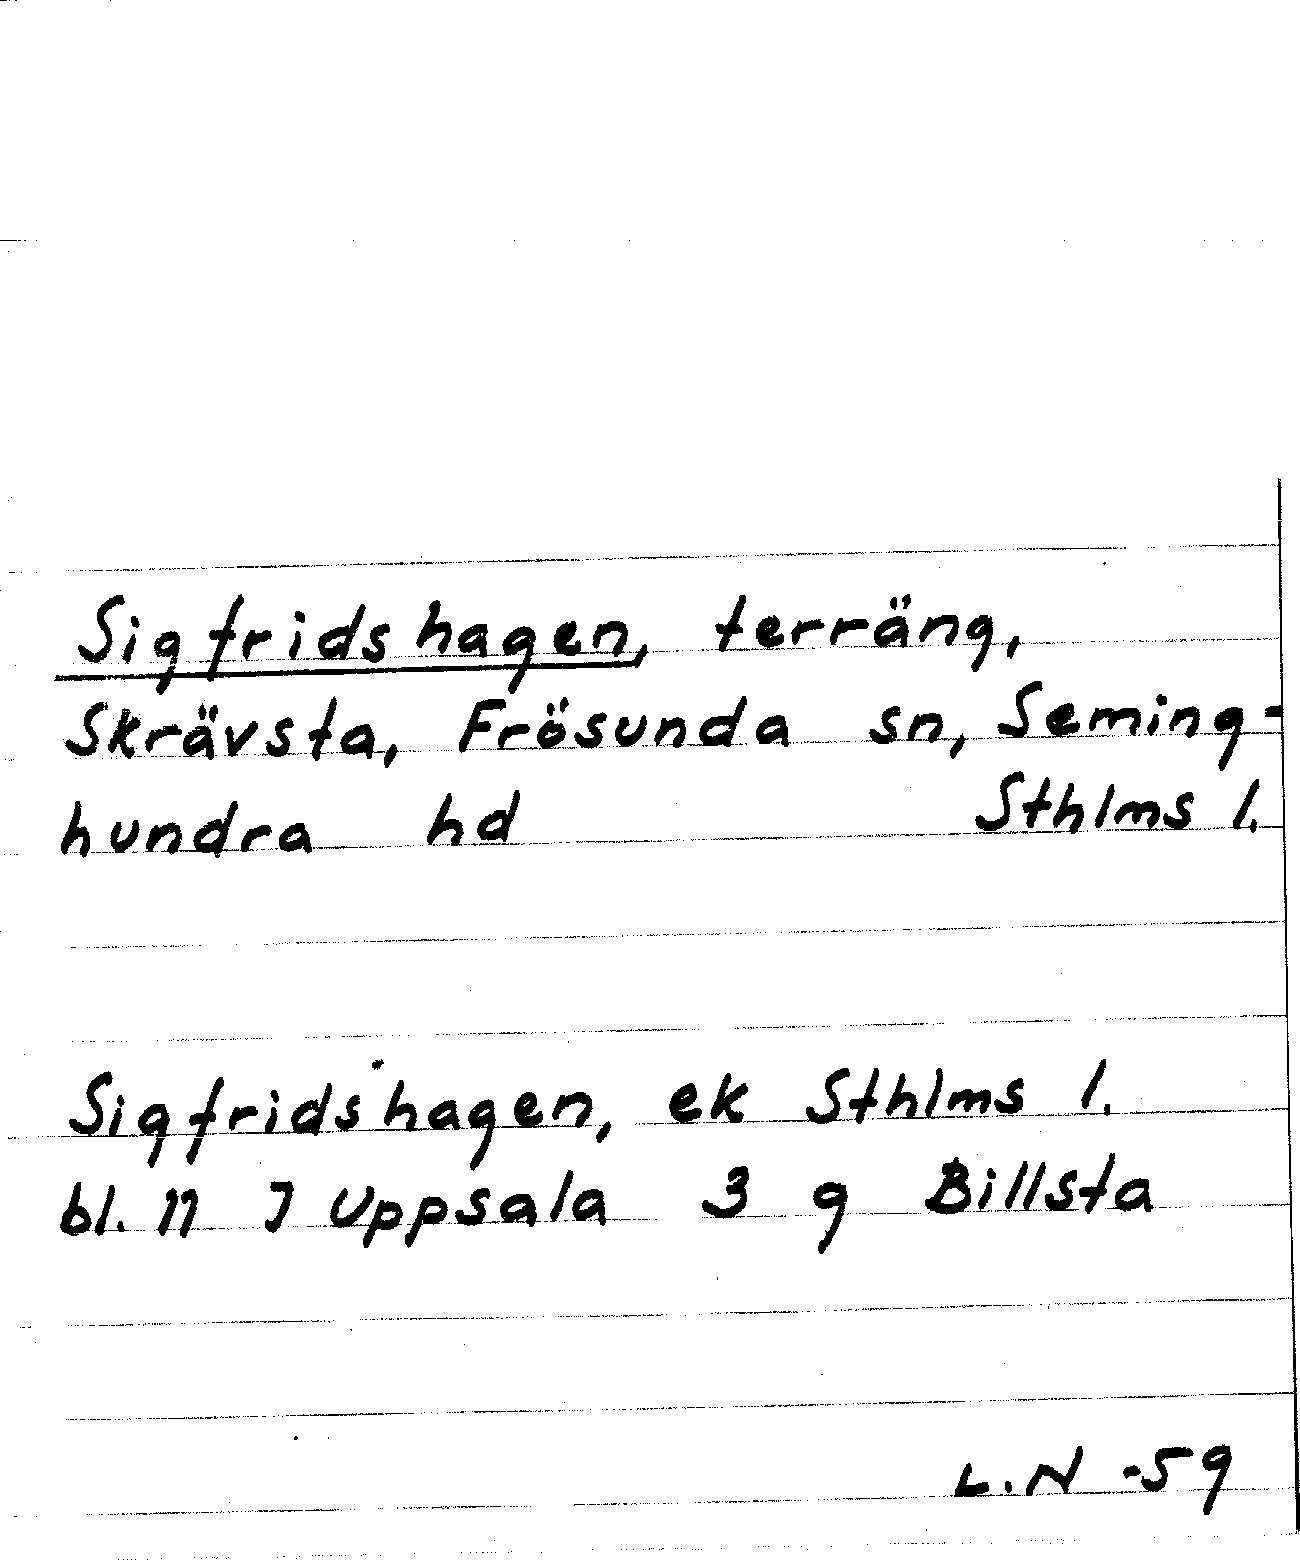 Sigfridshagen, terräng,
Skrävsta, Frösunda sn, Seming-
hundra hd Sthlms l.
Sigfridshagen, ek Sthlms l.
bl. 11 I Uppsala 3 g Billsta
L.N -59